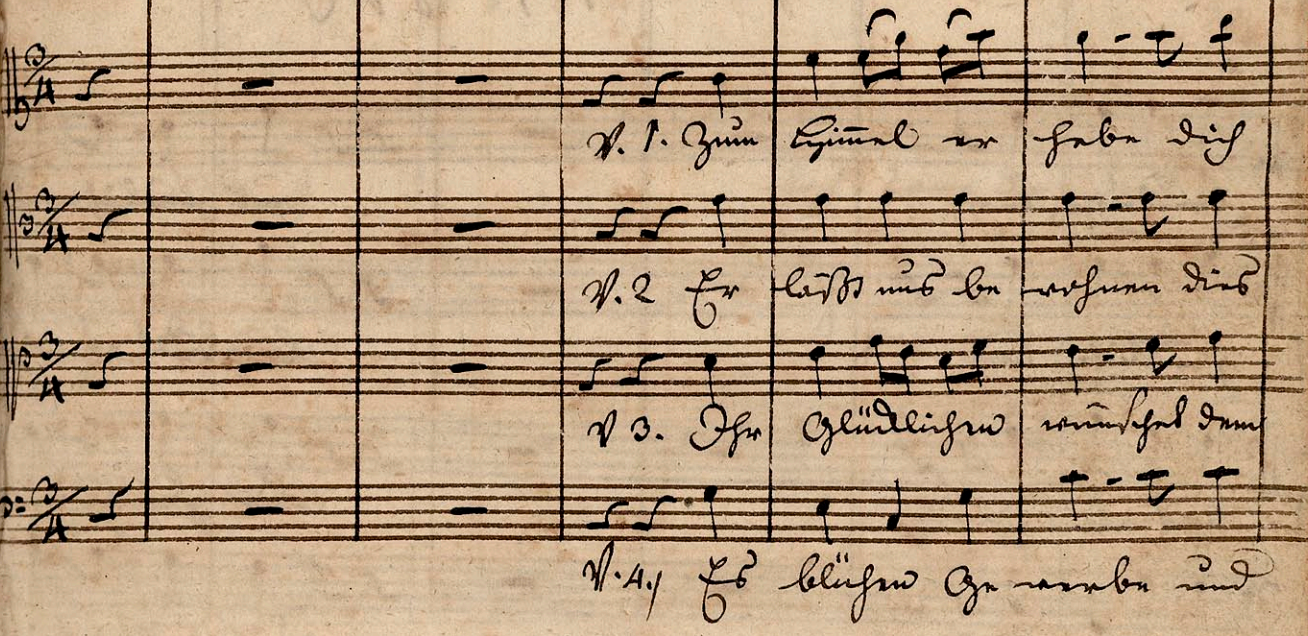 V. 1. Zum Him̅el er hebe dich
V. 2 Er läßt uns be wohnen dies
V 3. Ihr Glücklichen wünschet dem
V. 4. Es blühen Ge werbe und